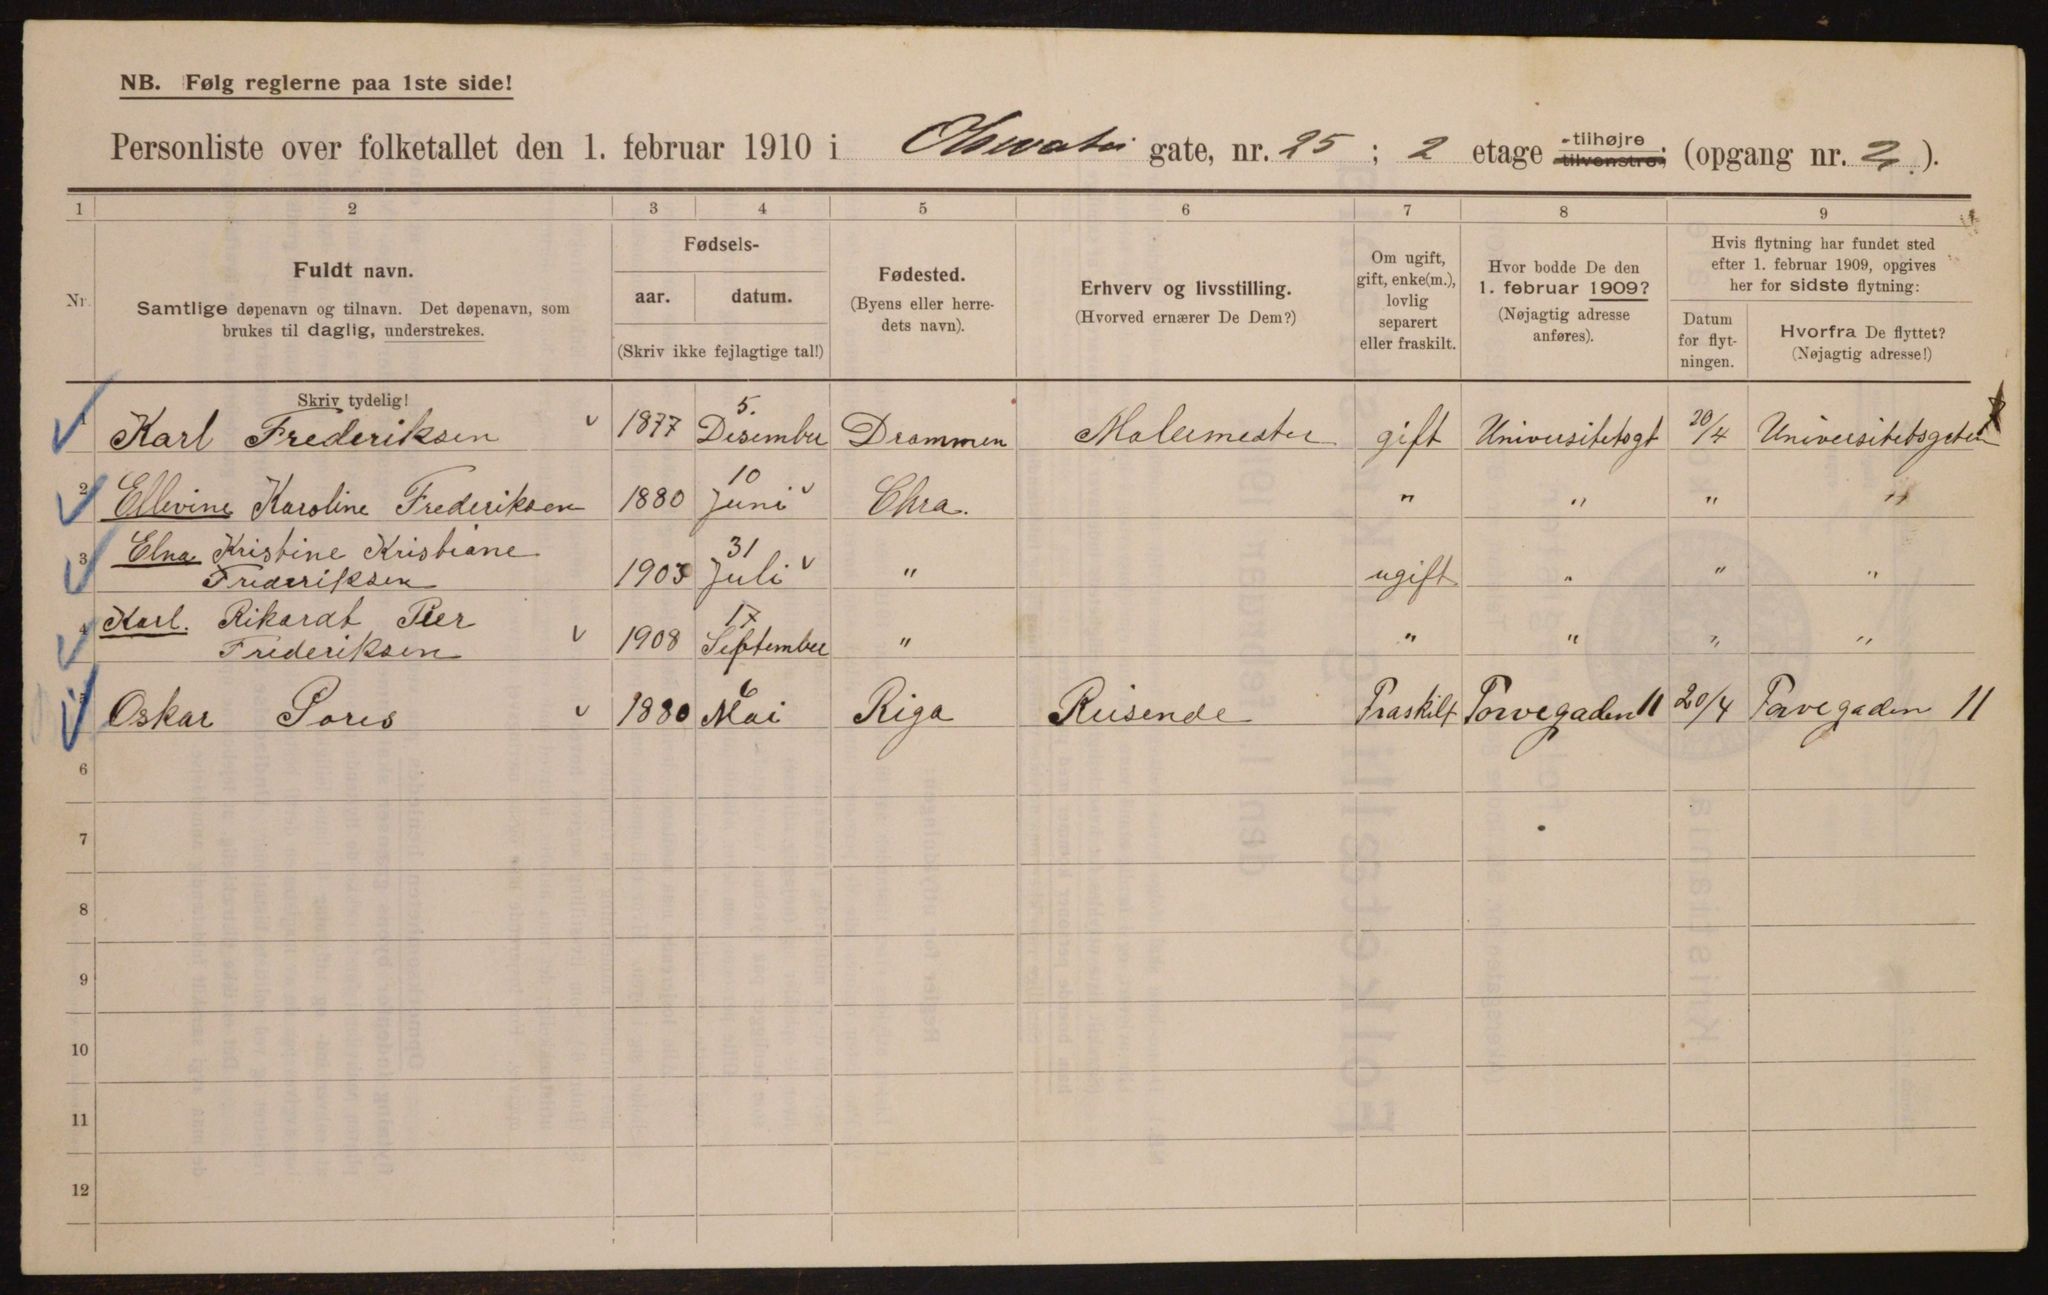 NB. Følg reglerne paa 1ste side!
Personliste over folketallet den 1. februar 1910 i gate, nr. 25 ; 2 etage tilhøjre tilvenstre; (opgang nr. 2 ).
1 2 3 4 5 6 7 8 9
Nr.
Fuldt navn.
Samtlige døpenavn og tilnavn. Det døpenavn, som
brukes til daglig, understrekes.
Fødsels-
aar. datum.
(Skriv ikke fejlagtige tal!)
Fødested.
(Byens eller herre-
dets navn).
Erhverv og livsstilling.
(Hvorved ernærer De Dem?)
Om ugift,
gift, enke(m.),
lovlig
separert
eller fraskilt.
Hvor bodde De den
1. februar 1909?
(Nøjagtig adresse
anføres).
Hvis flytning har fundet sted
efter 1. februar 1909, opgives
her for sidste flytning:
Datum
for flyt-
ningen.
Hvorfra De flyttet?
(Nøjagtig adresse!)
Skriv tydelig!
1 Karl Frederiksen 1877 5. Desember Drammen Malermester gift Universitetsgt 20/4 Universitetsgaten
2 Ellevine Karoline Frederiksen 1880 10 Juni Chra. " " " "
3 Elna Kristine Kristiane
Frederiksen 1903 31 Juli " ugift " " "
4 Karl. Rikardt Peer
Frederiksen 1908 17 September " " " " "
5 Oskar 1880 6 Mai Riga Reisende Fraskilt Torvegaden 11 20/4 Torvegaden 11
6
7
8
9
10
11
12